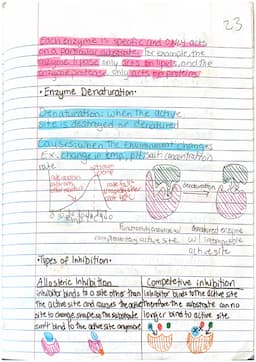 23
Each enzyme is specific and ONLY acts
on a particular substrate. For example, the
enzyme lipase only acts on lipids, and the
enzyme protease only acts on proteins.
• Enzyme Denaturation •
Denaturation: when the active
site is destroyed or denatured
Causes: when the environment changes
Ex. change in temp, pH, salt (concentration)
rate
optimum
denaturation
Functional enzyme w/
complementary active site
denatured enzyme
w/
active site
• Types of Inhibition •
Allosteric Inhibition
Competetive inhibition
Inhibitor binds to a site other than
the active site and causes the active
site to change shape so the substrate
can't bind to the active site anymore
Inhibitor binds to the active site
therefore the substrate can no
longer bind to active site